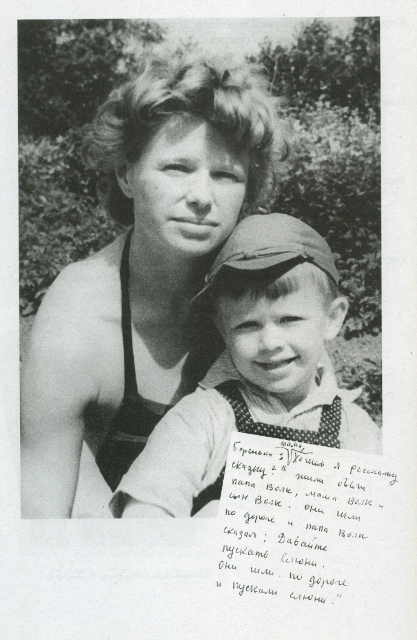 мама,
Хочешь я расскажу
сказку? жили были
папа Волк, мама Волк и
сын Волк. Они шли
по дороге и папа Волк
сказал: Давайте
пускать слюни.
Они шли по дороге
и пускали слюни."